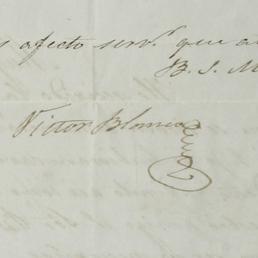 s afecto serv.r que a
B. S. M
Victor Blanco